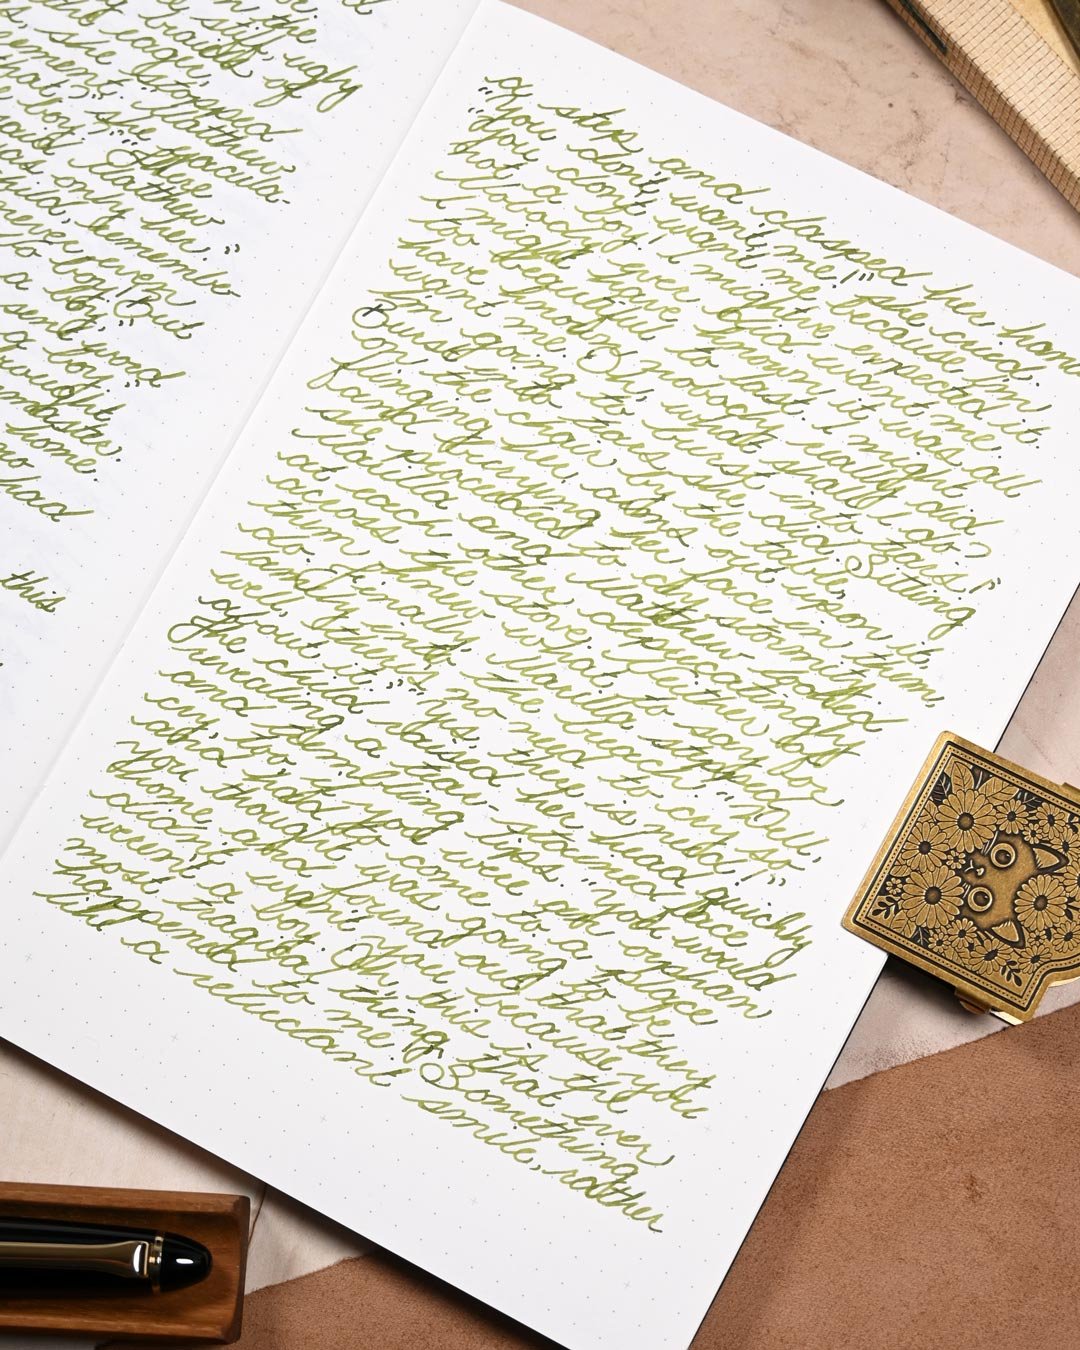 stiff, ugly
braids of
eager
she stopped
Matthew
that?" she ejacula-
said Matthew
only her."
rememb-
never even
No boy! But
a boy,"
sent word
a boy."
brought
home.
had
this
of step, and clasped her hands
"You don't want me!" she cried.
"You don't want me because I'm
not a boy! I might've expected it.
Nobody ever did want me.
I might have known it was all
too beautiful to last. I might
have known nobody really did
want me. Oh, what shall I do?
I'm going to burst into tears!"
Burst into tears she did. Sitting
on the chair by the table,
flinging her arms out upon it,
and burying her face in them,
she proceeded to cry stormily.
Marilla and Matthew looked
at each other deprecatingly
across the stove. Neither
them knew what to say or
do. Finally Marilla stepped
lamely into the breach. "Well,
well, there's no need to cry so
about it." "Yes, there is need!"
The child raised her head quickly
revealing a tear-stained face
and trembling lips. "You would
cry, too, if you were an orphan
and had come to a place
you thought was going to be
home and found out that they
didn't want you because you
weren't a boy. Oh, this is the
most tragical thing that ever
happened to me. Something
like a reluctant smile, rather